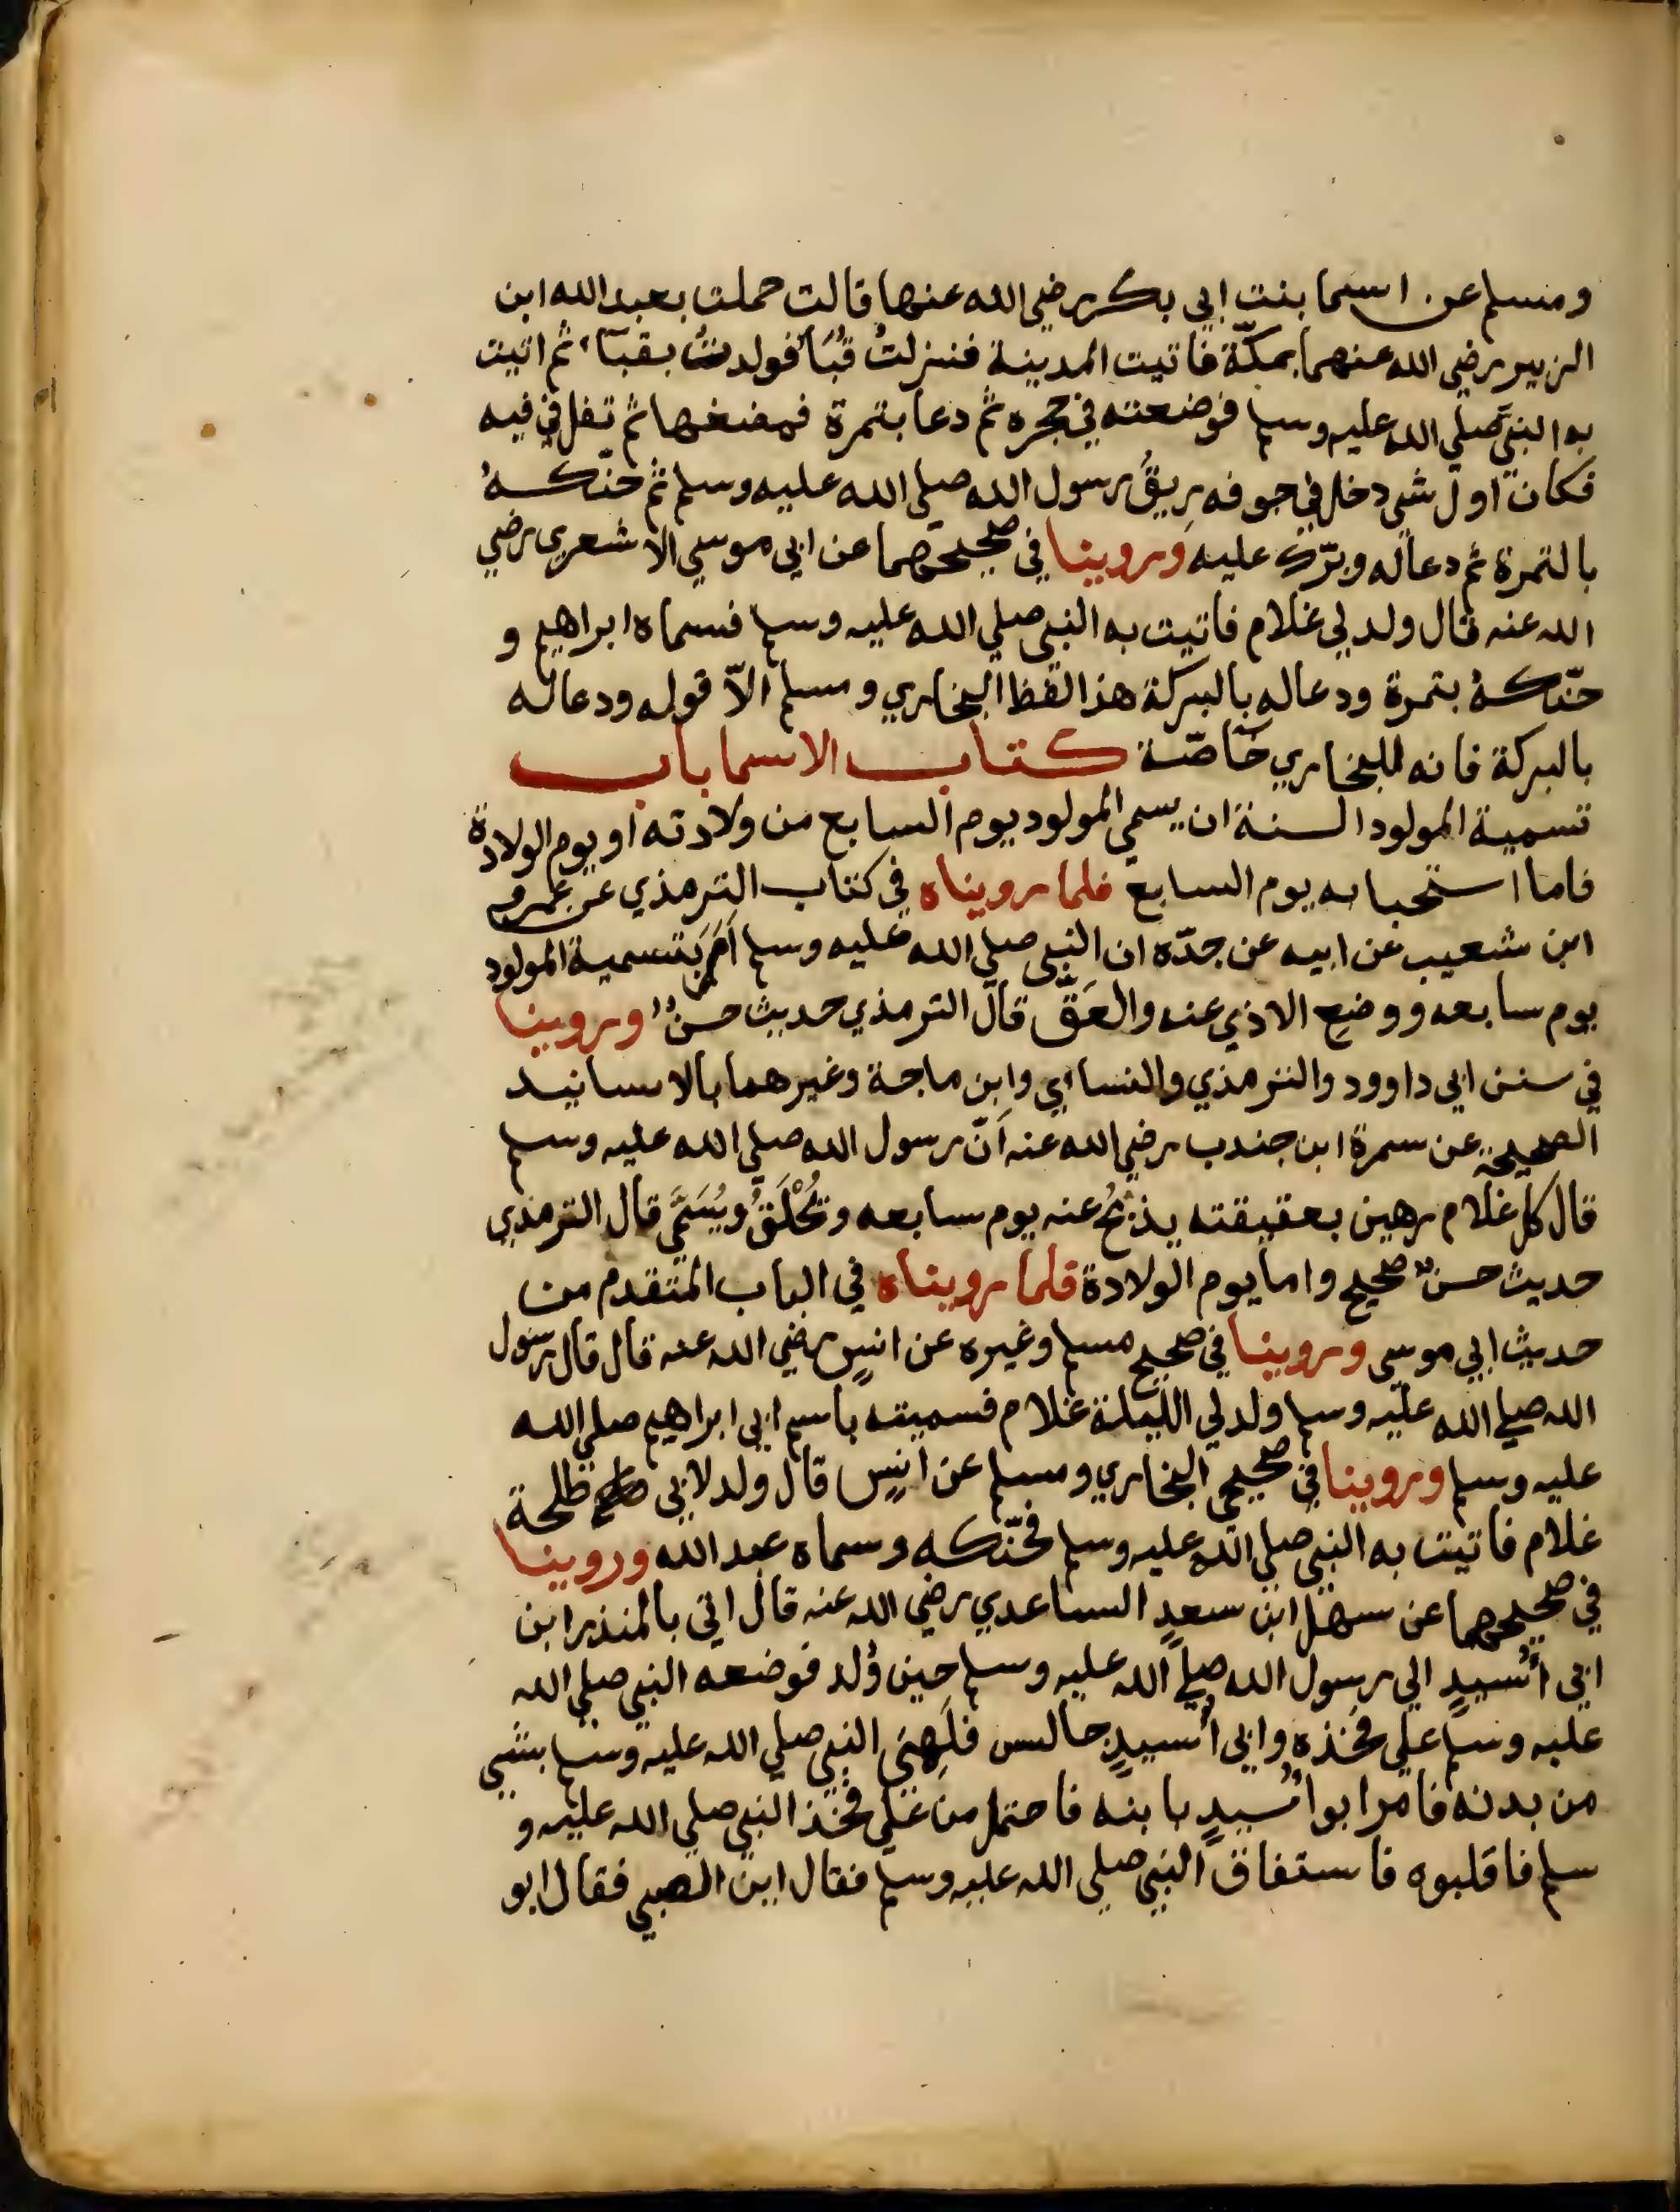 ومسلم عن اسما بنت ابي بكر رضي الله عنها قالت حملت بعبد الله ابن
الزبير رضي الله عنهما بمكّة فاتيت المدينة فنزلتُ قُبَأ فولدتُ بقبآء ثم اتيت
به النبي صلي الله عليه وسلم فوضعته في حجره ثم دعا بتمرة فمضغها ثم تفل في فيه
فكان اول شي دخل في جوفه رِيقُ رسول الله صلي الله عليه وسلم ثم حنّكهُ
بالتمرة ثم دعا له وبرّك عليه وروينا في صحيحهما عن ابي موسي الاشعري رضي
الله عنه قال ولد لي غلام فاتيت به النبي صلي الله عليه وسلم فسماه ابراهيم و
حنّكهُ بتمرة ودعا له بالبركة هذا لفظ البخاري ومسلم الاّ قوله ودعا له
بالبركة فانه للبخاري خاصّة كتاب الاسما باب
تسمية المولود السنة ان يسمي المولود يوم السابع من ولادته او يوم الولادة
فاما استحبابه يوم السابع فلما رويناه في كتاب الترمذي عن عمرو
ابن شعيب عن ابيه عن جدّه ان النبي صلي الله عليه وسلم اَمَرَ بتسمية المولود
يوم سابعه ووضعِ الاذي عنه والعَقّ قال الترمذي حديث حسنٌ وروينا
في سنن ابي داوود والترمذي والنساي وابن ماجة وغيرهما بالاسانيد
الصحيحة عن سمرة ابن جندب رضي الله عنه اَنّ رسول الله صلي الله عليه وسلم
قال كل غلام رهين بعقيقته يذبحُ عنه يوم سابعه وتُحْلَقُ ويُسَمَّي قال الترمذي
حديث حسنٌ صحيح واما يوم الولادة فلما رويناه في الباب المتقدم من
حديث ابي موسى وروينا في صحيح مسلم وغيره عن انسٍ رضي الله عنه قال قال رسول
الله صلي الله عليه وسلم ولد لي الليلة غلام فسميته باسم ابي ابراهيم صلي الله
عليه وسلم وروينا في صحيحي البخاري ومسلم عن انسٍ قال ولد لابي طلحة
غلام فاتيت به النبي صلي الله عليه وسلم فحنّكه وسماه عبد الله وروينا
في صحيحهما عن سهل ابن سعدٍ الساعدي رضي الله عنه قال اتي بالمنذر ابن
ابي أُسيدٍ الي رسول الله صلي الله عليه وسلم حين وُلد فوضعه النبي صلي الله
عليه وسلم علي فخذه وابي أُسيدٍ جالس فلَهِيَ النبي صلي الله عليه وسلم بشي
من بدنه فامر ابو أُسيدٍ بابنه فاحتمل من علي فخذ النبي صلي الله عليه و
سلم فاقلبوه فاستفاق النبي صلي الله عليه وسلم فقال اين الصبي فقال ابو